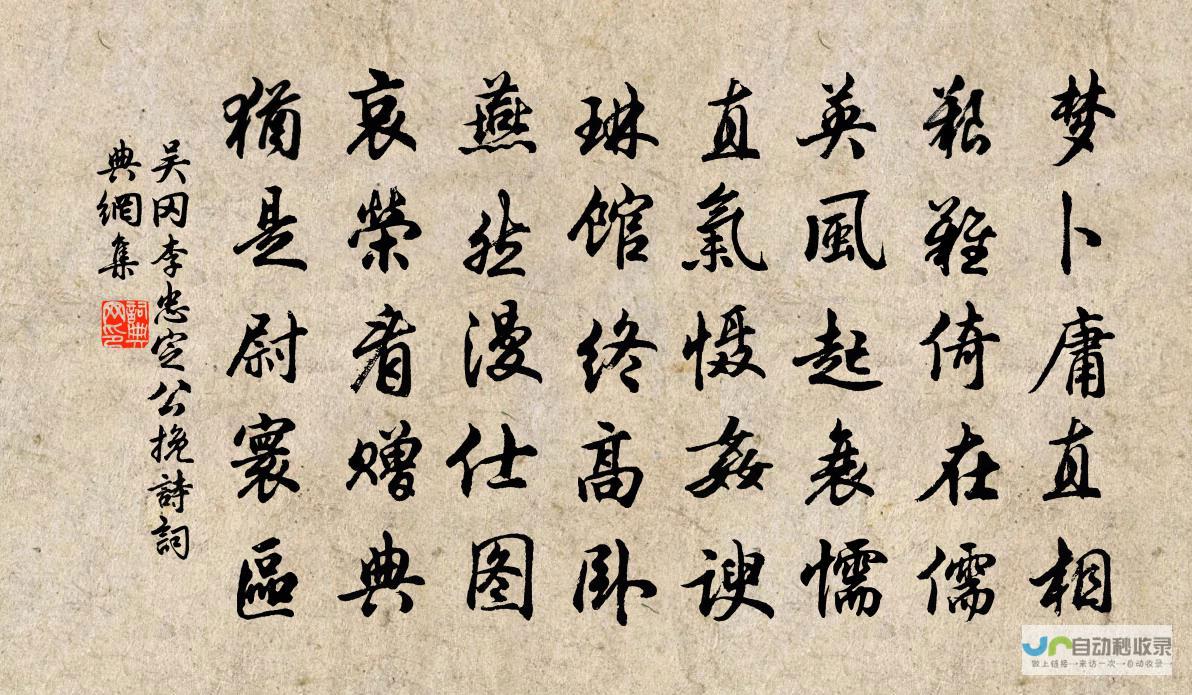 梦卜庸直相
艰难倚在儒
英风起衰懦
直气慑姦谀
琳馆终高卧
燕然漫仕图
哀荣看赠典
犹是尉寰區
吴冈李忠定公挽詩詞
典網集
詞典网印
自动秒收录
做上链接→来访一次→自动收录